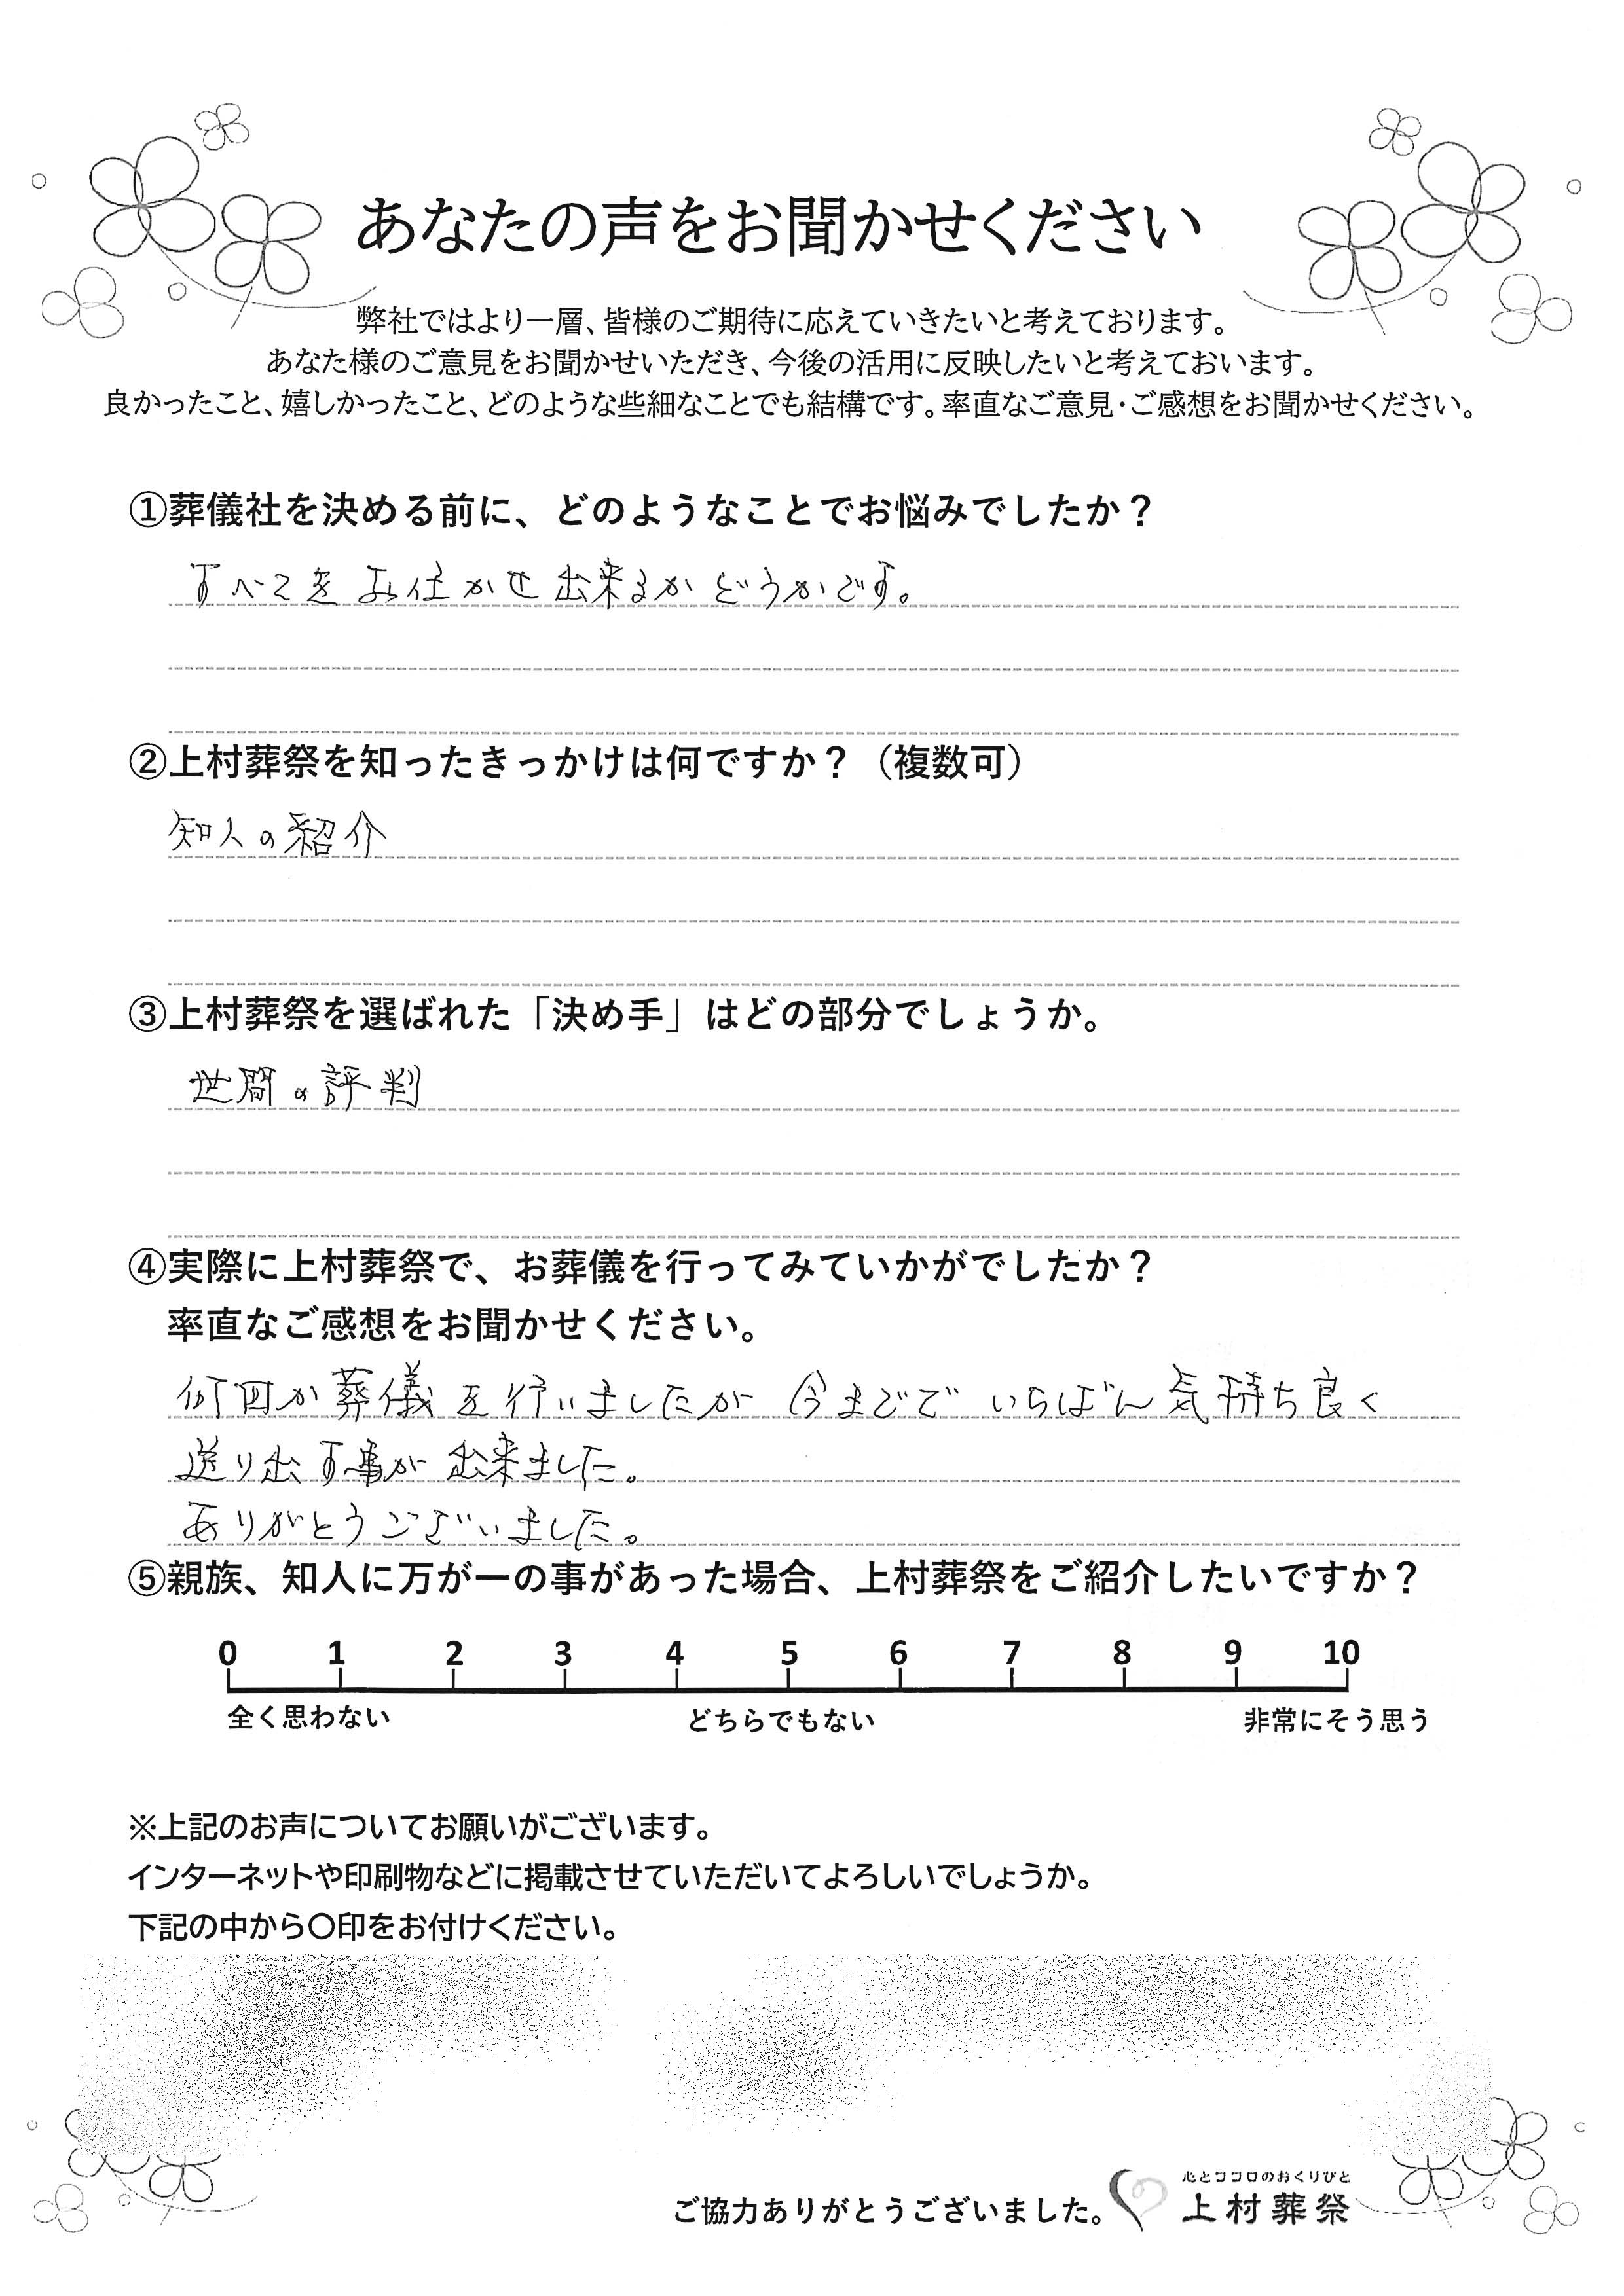 あなたの声をお聞かせください
弊社ではより一層、皆様のご期待に応えていきたいと考えております。
あなた様のご意見をお聞かせいただき、今後の活用に反映したいと考えておいます。
良かったこと、嬉しかったこと、どのような些細なことでも結構です。率直なご意見・ご感想をお聞かせください。
①葬儀社を決める前に、どのようなことでお悩みでしたか？
すべてをお任かせ出来るかどうかです。
②上村葬祭を知ったきっかけは何ですか？（複数可）
知人の紹介
③上村葬祭を選ばれた「決め手」はどの部分でしょうか。
世間の評判
④実際に上村葬祭で、お葬儀を行ってみていかがでしたか？
率直なご感想をお聞かせください。
何回か葬儀を行いましたが 今までで いちばん気持ち良く
送り出す事が出来ました。
ありがとうございました。
⑤親族、知人に万が一の事があった場合、上村葬祭をご紹介したいですか？
0 1 2 3 4 5 6 7 8 9 10
全く思わない どちらでもない 非常にそう思う
※上記のお声についてお願いがございます。
インターネットや印刷物などに掲載させていただいてよろしいでしょうか。
下記の中から〇印をお付けください。
心とココロのおくりびと
ご協力ありがとうございました。 上村葬祭